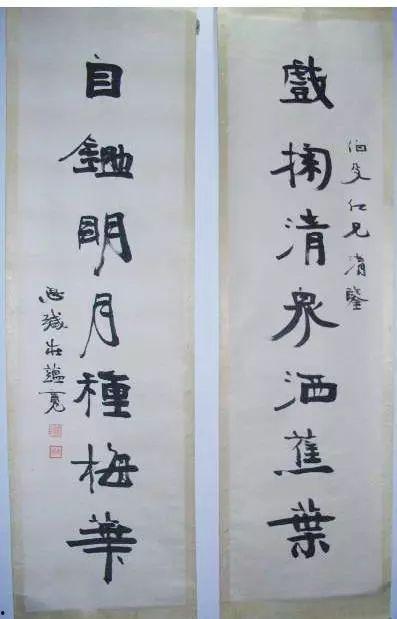 戲掬清泉洒蕉葉
伯仁兄清鑒
自鋤明月種梅華
思緘莊蘊寬